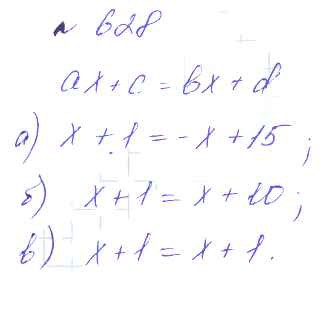 № 628
ax + c = bx + d
а) x + 1 = - x + 15 ;
б) x + 1 = x + 10 ;
в) x + 1 = x + 1 .